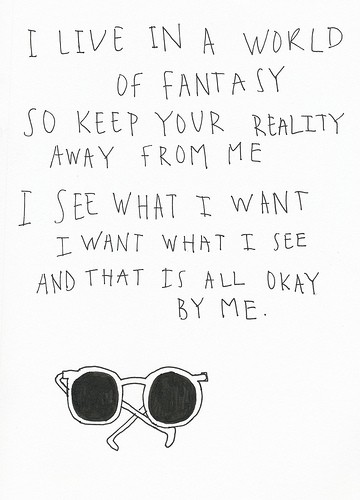 I LIVE IN A WORLD
OF FANTASY
SO KEEP YOUR REALITY
AWAY FROM ME
I SEE WHAT I WANT
I WANT WHAT I SEE
AND THAT IS ALL OKAY
BY ME.